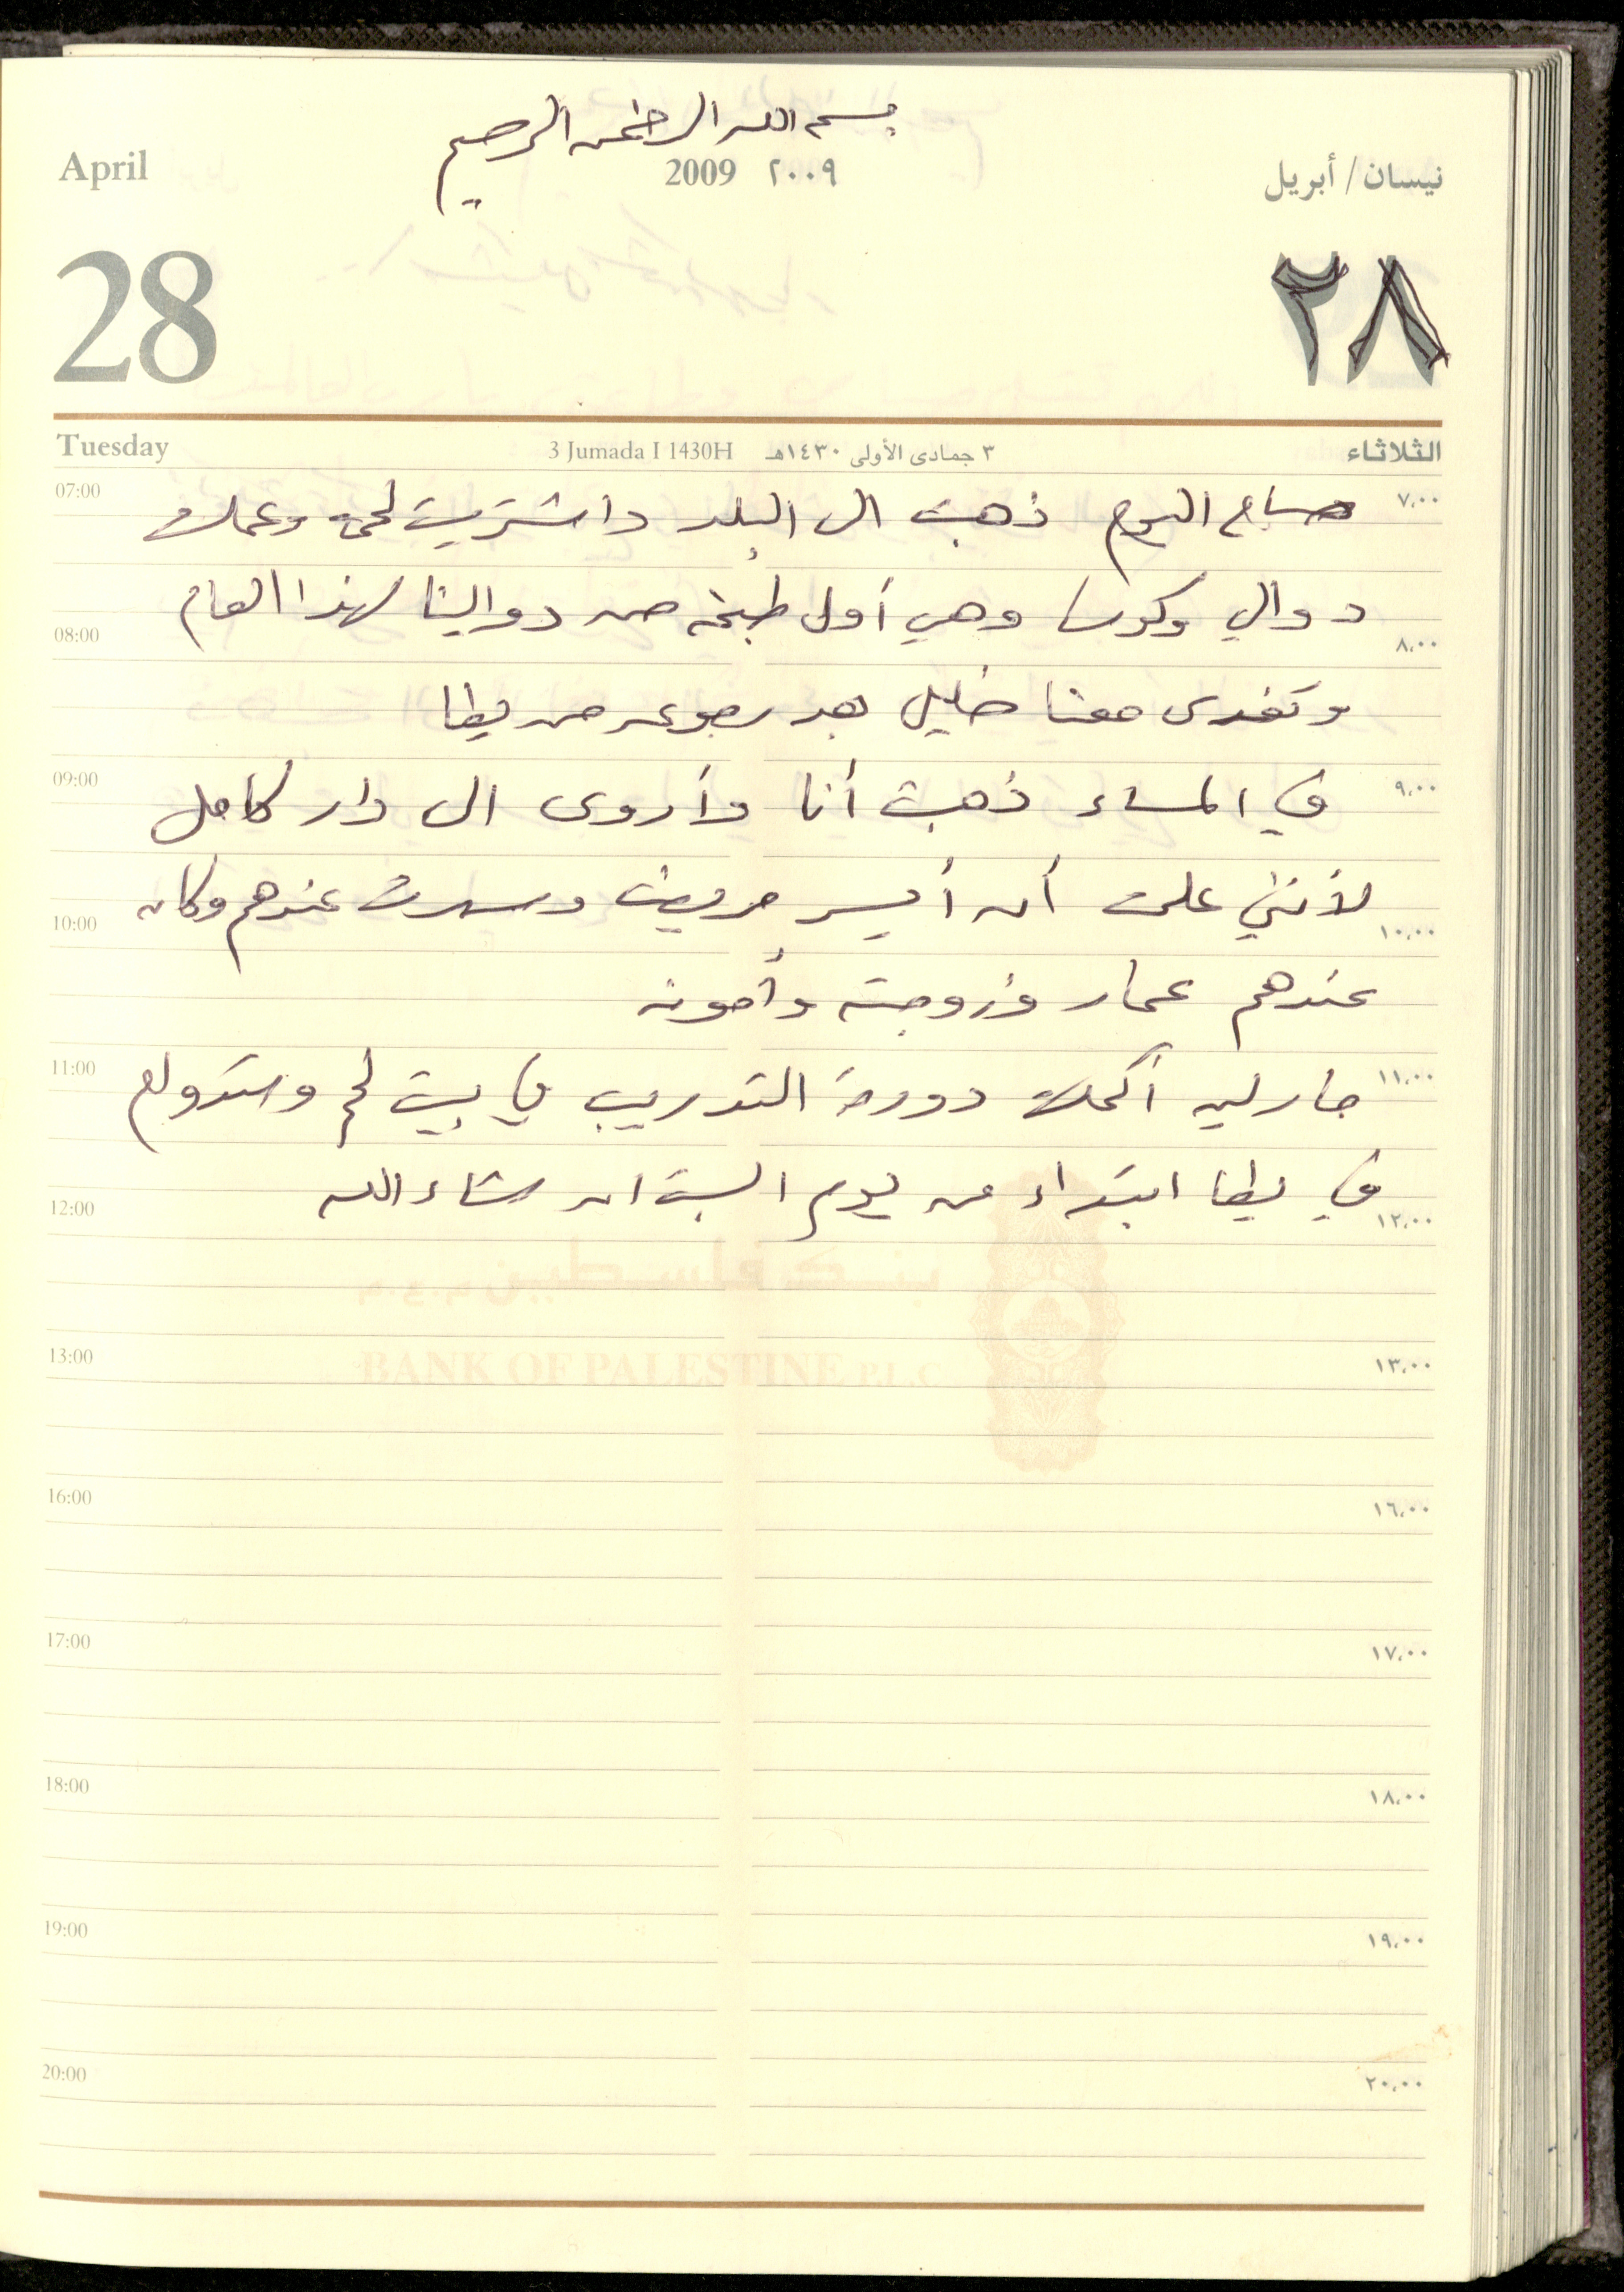 بسم الله الرحمن الرحيم
April 2009 ٢٠٠٩ نيسان/ أبريل
28 ٢٨
Tuesday 3 Jumada I 1430H ٣ جمادى الأولى ١٤٣٠هـ الثلاثاء
07:00 ٧،٠٠
صباح اليوم ذهبت الى البلد واشتريت لحمة وعملت
دوالي وكوسا وهي أول طبخة من دوالينا لهذا العام
08:00 ٨،٠٠
وتغدى معنا خليل بعد رجوعه من يطا
09:00 ٩،٠٠
في المساء ذهبت أنا وأروى الى دار كامل
لأنني علمت أن أيسر مريض وسهرت عندهم وكان
10:00 ١٠،٠٠
عندهم عمار وزوجته وأمونه
11:00 ١١،٠٠
مارلين أكملت دورة التدريب في بيت لحم وستداوم
في يطا ابتداء من يوم السبت ان شاء الله
12:00 ١٢،٠٠
بنك فلسطين
BANK OF PALESTINE P.L.C
13:00 ١٣،٠٠
16:00 ١٦،٠٠
17:00 ١٧،٠٠
18:00 ١٨،٠٠
19:00 ١٩،٠٠
20:00 ٢٠،٠٠